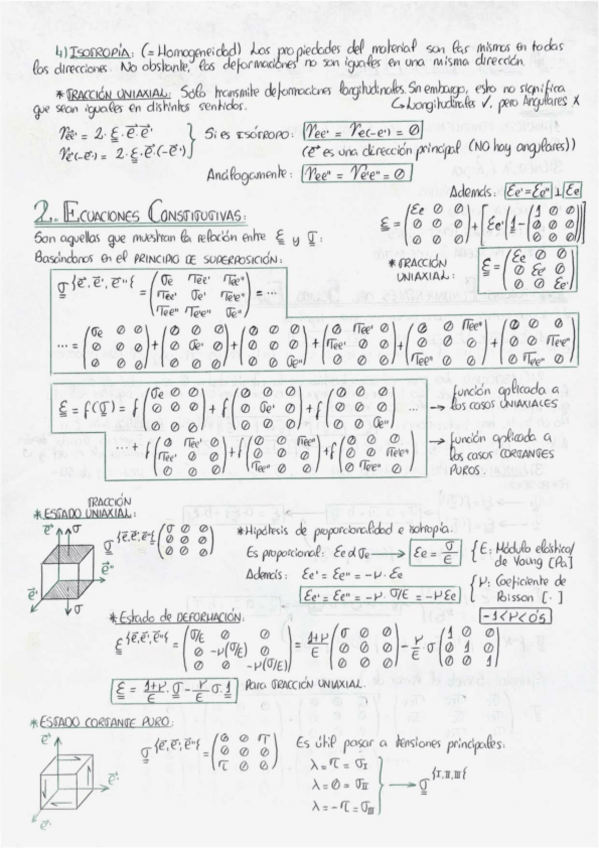 4) ISOTROPÍA: (= Homogeneidad) Las propiedades del material son las mismas en todas
las direcciones. No obstante, las deformaciones no son iguales en una misma dirección.
* TRACCIÓN UNIAXIAL: Solo transmite deformaciones longitudinales. Sin embargo, esto no significa
que sean iguales en distintos sentidos. ↳ Longitudinales ✓, pero Angulares X
γee' = 2·ε·e⃗·e⃗'
γe(-e') = 2·ε·e⃗·(-e⃗')
Si es ISÓTROPO: γee' = γe(-e') = 0
(e⃗ es una dirección principal (NO hay angulares))
Análogamente: γee'' = γe'e'' = 0
Además: εe' = εe'' ⊥ εe
2. ECUACIONES CONSTITUTIVAS:
ε = (εe 0 0; 0 0 0; 0 0 0) + [εe'(1 - (1 0 0; 0 0 0; 0 0 0))]
Son aquellas que muestran la relación entre ε y σ:
Basándonos en el PRINCIPIO DE SUPERPOSICIÓN:
* TRACCIÓN UNIAXIAL: ε = (εe 0 0; 0 εe' 0; 0 0 εe')
σ {e⃗, e⃗', e⃗''} = (σe τee' τee''; τee' σe' τe'e''; τee'' τe'e'' σe'') = ...
... = (σe 0 0; 0 0 0; 0 0 0) + (0 0 0; 0 σe' 0; 0 0 0) + (0 0 0; 0 0 0; 0 0 σe'') + (0 τee' 0; τee' 0 0; 0 0 0) + (0 0 τee''; 0 0 0; τee'' 0 0) + (0 0 0; 0 0 τe'e''; 0 τe'e'' 0)
ε = f(σ) = f(σe 0 0; 0 0 0; 0 0 0) + f(0 0 0; 0 σe' 0; 0 0 0) + f(0 0 0; 0 0 0; 0 0 σe'') ... → función aplicada a los casos UNIAXIALES
→ función aplicada a los casos CORTANTES PUROS.
* ESTADO UNIAXIAL: TRACCIÓN
σ {e⃗, e⃗', e⃗''} (σ 0 0; 0 0 0; 0 0 0)
* Hipótesis de proporcionalidad e isotropía.
Es proporcional: εe α σe → εe = σ/E
{E: Módulo elástico de Young [Pa]
Además: εe' = εe'' = -ν·εe
εe' = εe'' = -ν·σ/E = -νεe
{ν: Coeficiente de Poisson [·]
-1<ν<0'5
* Estado de DEFORMACIÓN:
ε {e⃗, e⃗', e⃗''} = (σ/E 0 0; 0 -ν(σ/E) 0; 0 0 -ν(σ/E)) = 1+ν/E (σ 0 0; 0 0 0; 0 0 0) - ν/E·σ (1 0 0; 0 1 0; 0 0 1)
ε = 1+ν/E · σ - ν/E σ·1 Para TRACCIÓN UNIAXIAL.
* ESTADO CORTANTE PURO:
σ {e⃗, e⃗', e⃗''} = (0 0 τ; 0 0 0; τ 0 0)
Es útil pasar a tensiones principales:
λ = τ = σI
λ = 0 = σII → σ {I, II, III}
λ = -τ = σIII